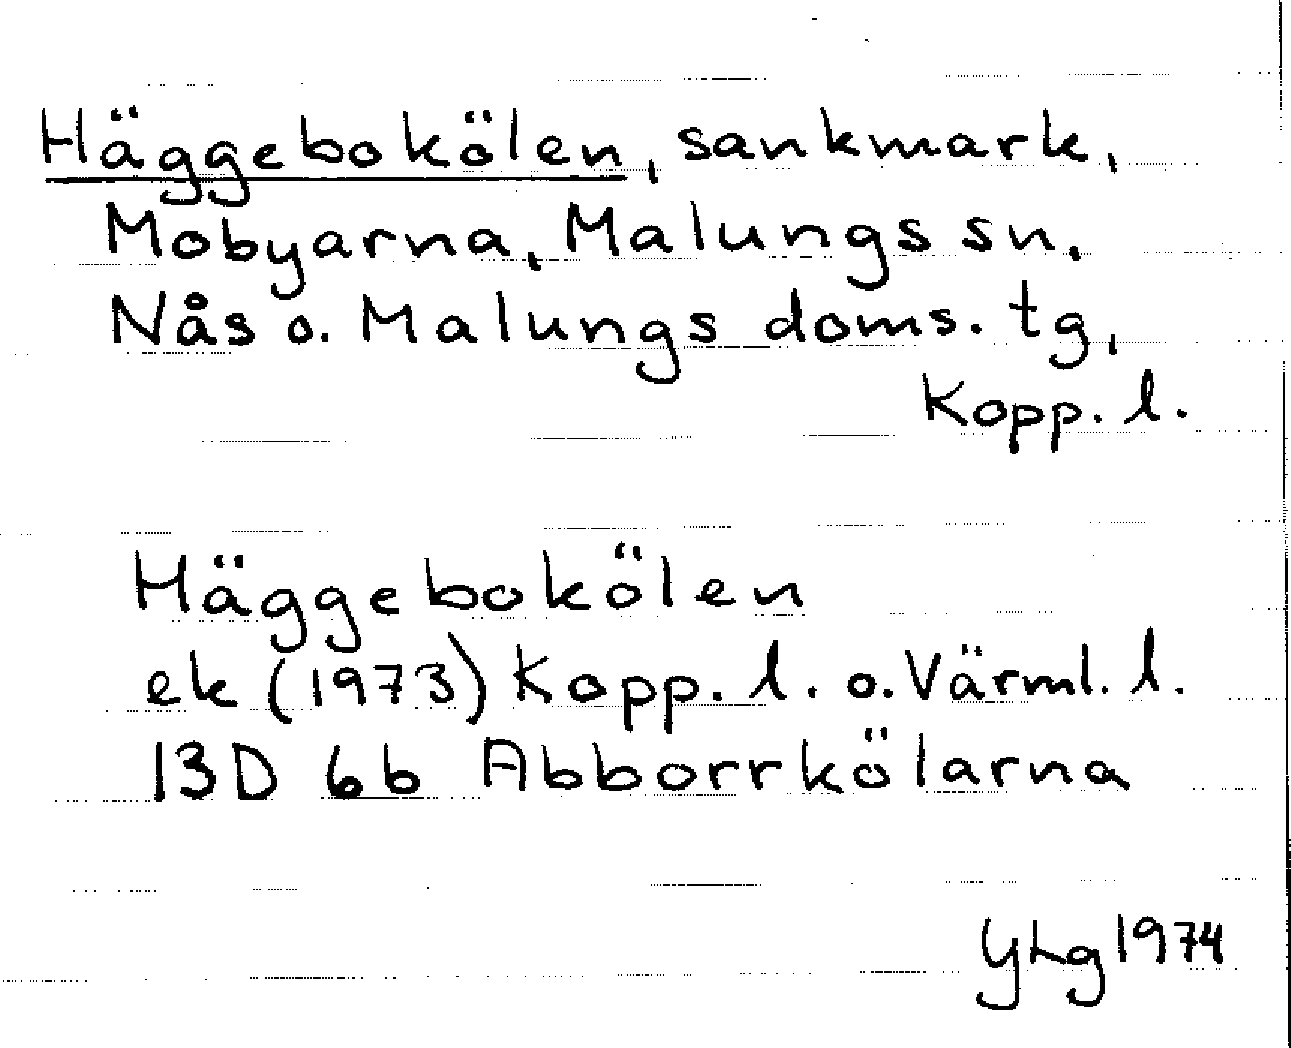 Häggebokölen, sankmark,
Mobyarna, Malungs sn.
Nås o. Malungs doms. tg,
Kopp. l.
Häggebokölen
ek (1973) Kopp. l. o. Värml. l.
13D 6b Abborrkölarna
YLg 1974